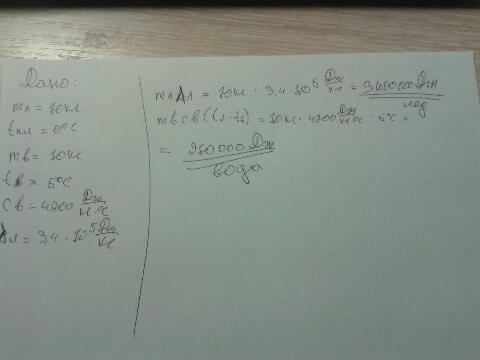 Дано:
mл = 10кг
tпл = 0°C
mв = 10кг
tв = 5°C
Cв = 4200 Дж/кг·°C
λл = 3,4 · 10⁵ Дж/кг
mлλл = 10кг · 3,4 · 10⁵ Дж/кг = 3400000 Дж
лед
mвcв(t₂-t₁) = 10кг · 4200 Дж/кг·°C · 5°C =
= 210000 Дж
вода